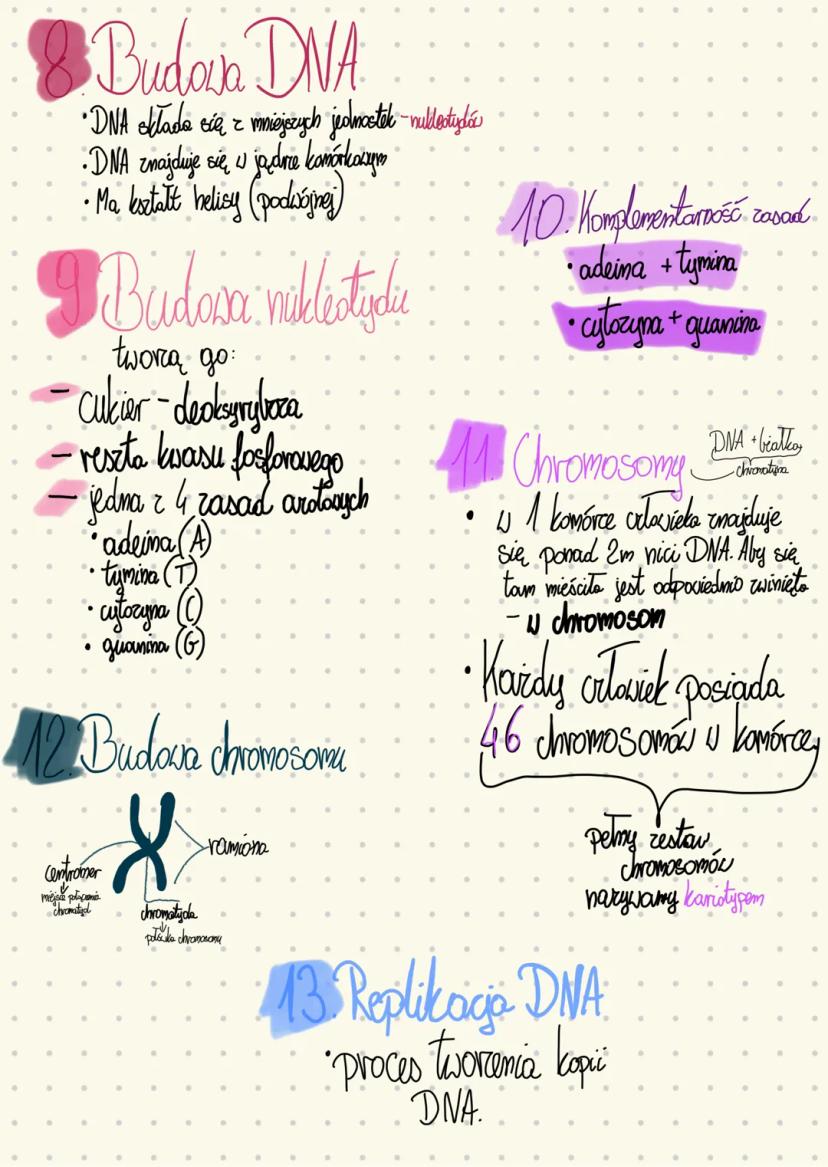 8 Budowa DNA
• DNA składa się z mniejszych jednostek - nukleotydów
• DNA znajduje się w jądrze komórkowym
• Ma kształt helisy (podwójnej)
9. Budowa nukleotydu
tworzą go:
- cukier - deoksyryboza
- reszta kwasu fosforowego
- jedna z 4 zasad azotowych
• adeina (A)
• tymina (T)
• cytozyna (C)
• guanina (G)
10. Komplementarność zasad
• adeina + tymina
• cytozyna + guanina
11. Chromosomy
DNA + białka
chromatyna
• w 1 komórce człowieka znajduje
się ponad 2m nici DNA. Aby się
tam mieściło jest odpowiednio zwinięta
- w chromosom
• Każdy człowiek posiada
46 chromosomów w komórce
pełny zestaw
chromosomów
nazywamy kariotypem
12. Budowa chromosomu
ramiona
centromer
↓
miejsce połączenia
chromatyd
chromatyda
↓
połówka chromosomu
13. Replikacja DNA
• proces tworzenia kopii
DNA.